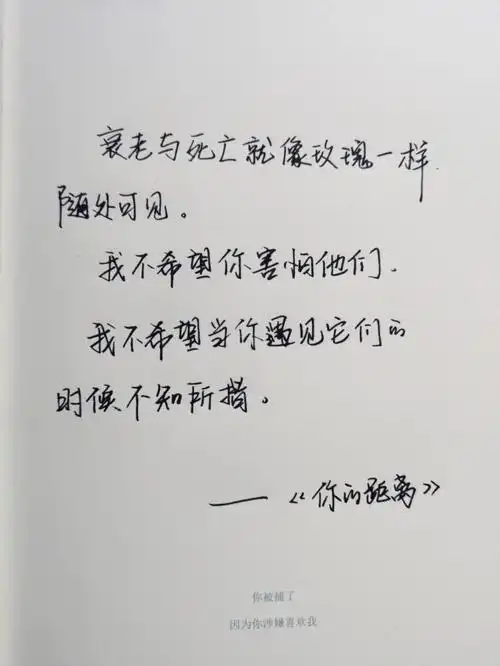 衰老与死亡就像玫瑰一样
随处可见。
我不希望你害怕他们.
我不希望当你遇见它们的
时候不知所措。
——《你的距离》
你被捕了
因为你涉嫌喜欢我